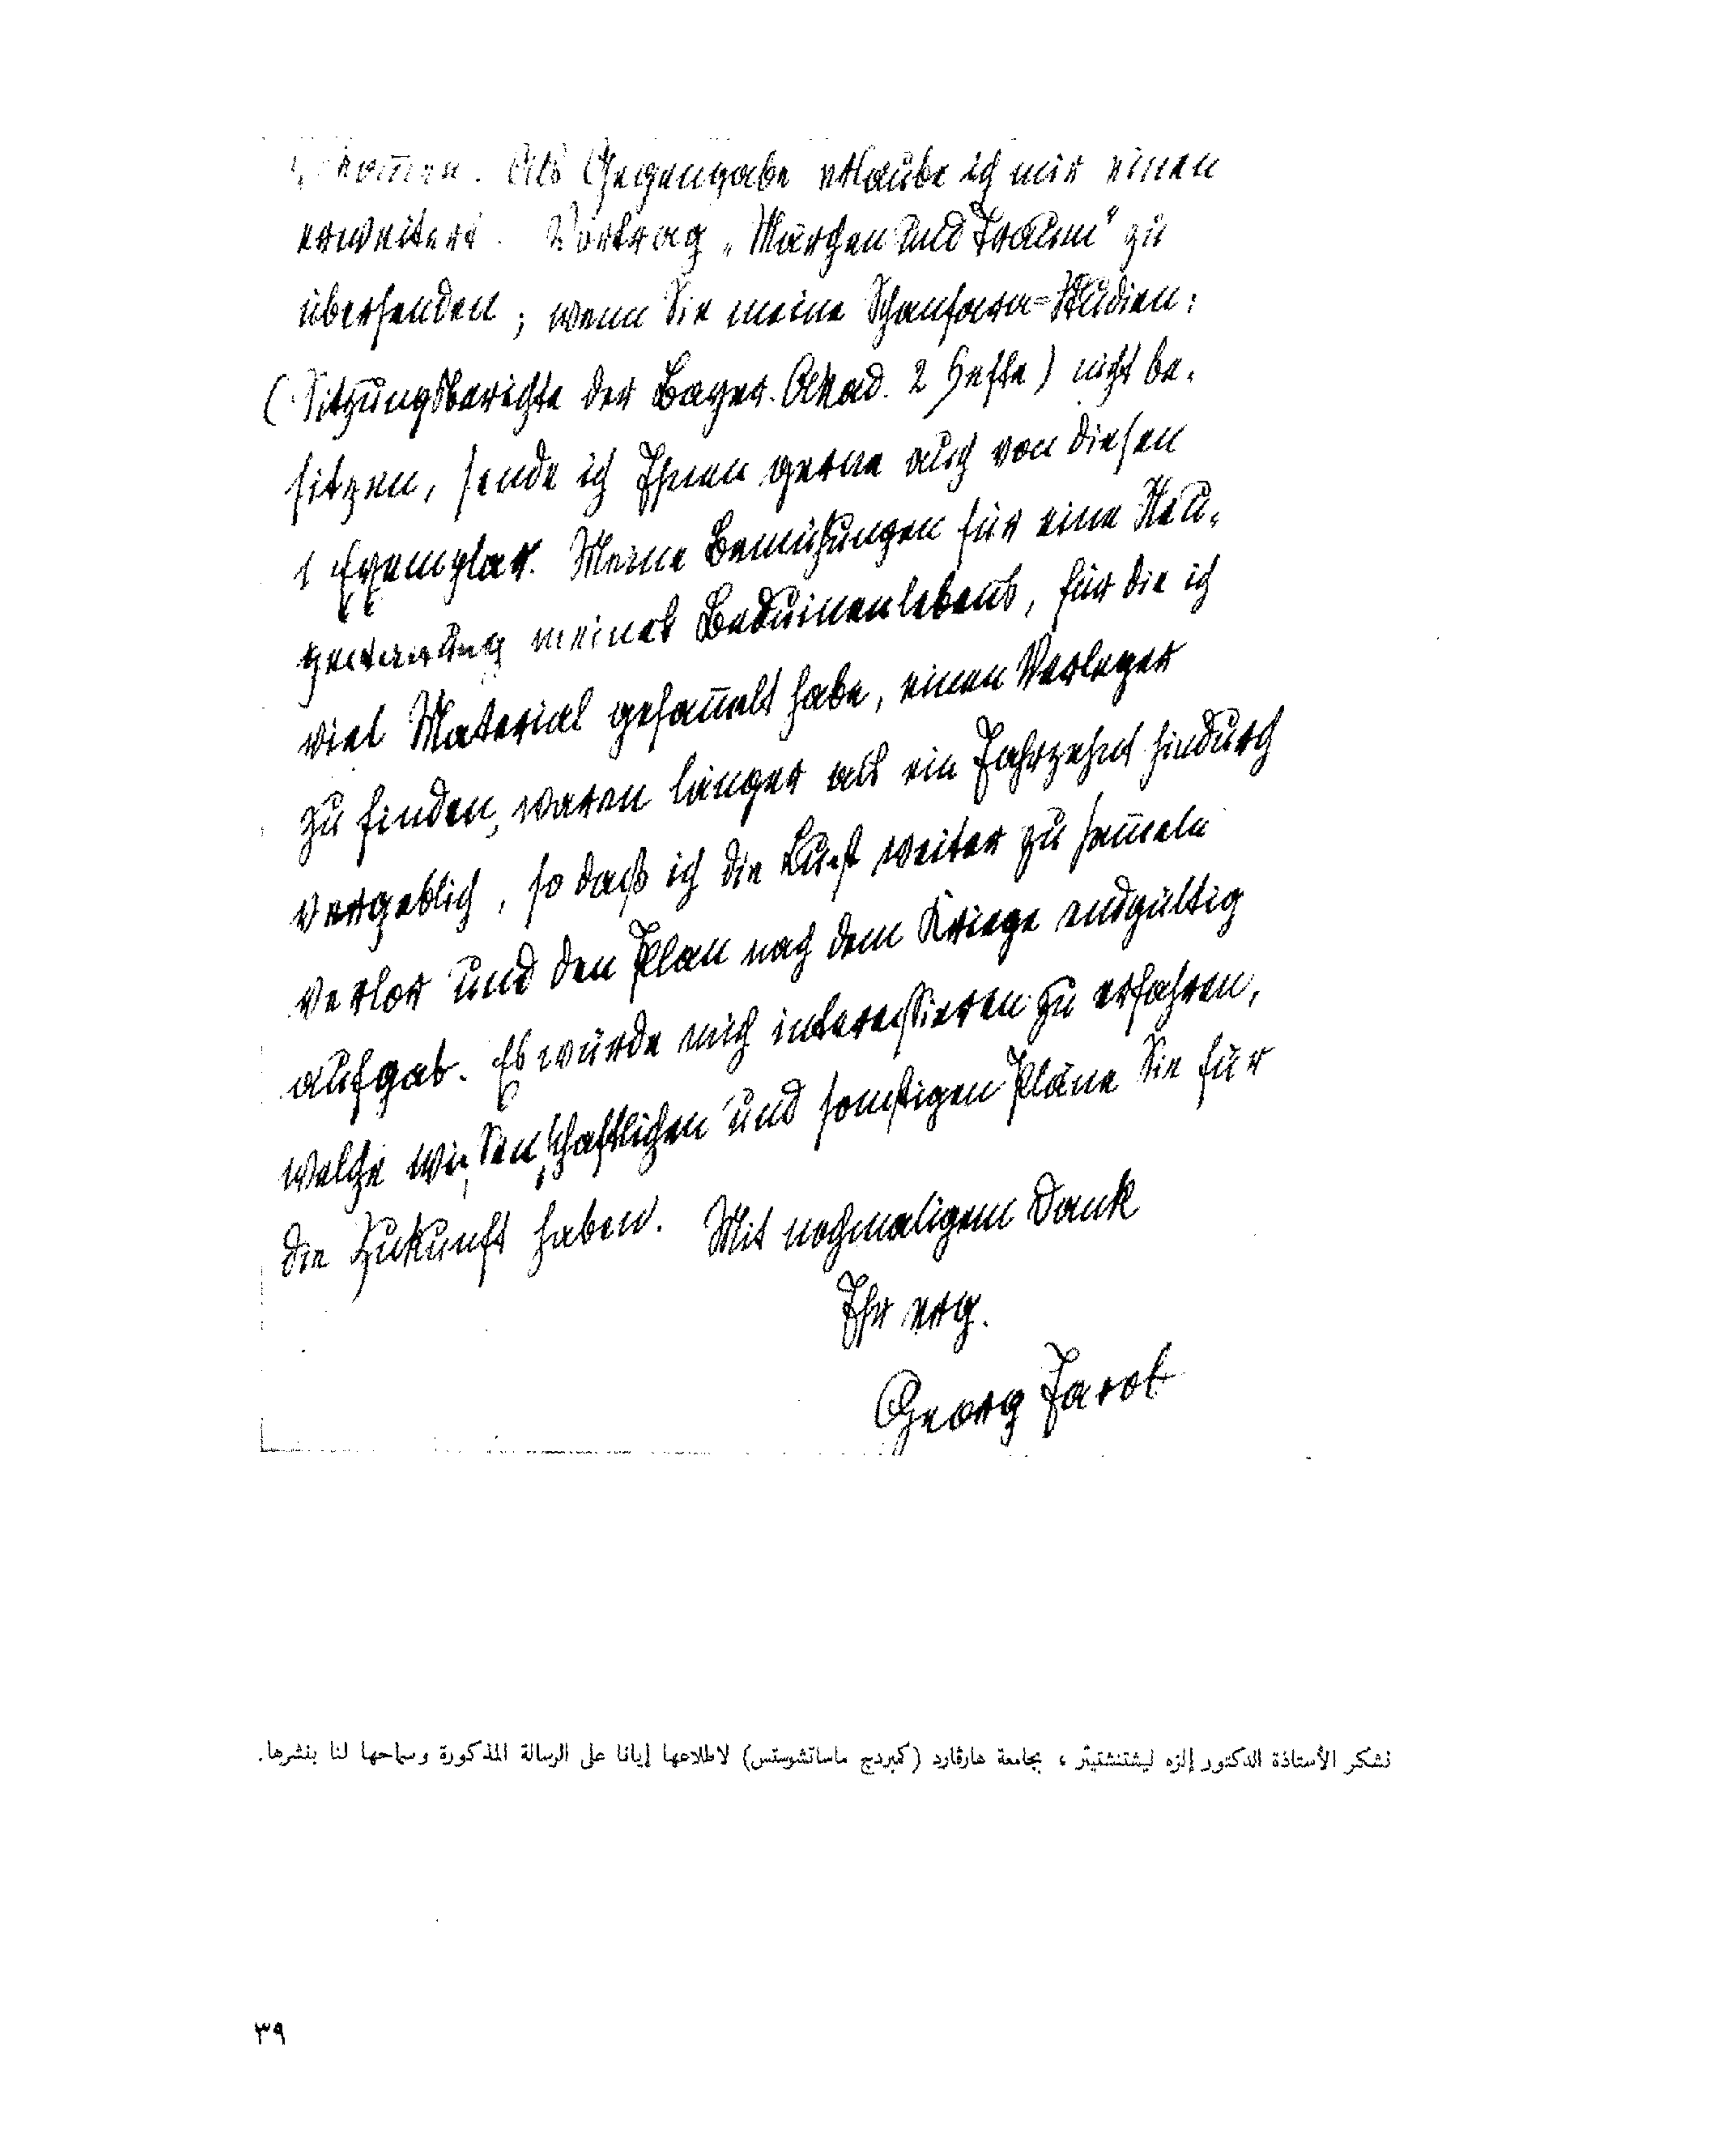 Als Gegengabe erlaube ich mir einen
erweitert. Vortrag „Märchen und Traum" zu
übersenden; wenn Sie meine Schanfara=Studien:
(Sitzungsberichte der Bayer. Akad. 2 Hefte) nicht be-
sitzen, sende ich Ihnen gerne auch von diesen
1 Exemplar. Meine Bemühungen für eine Neu-
meines Beduinenlebens, für die ich
viel Material gesam̅elt habe, einen Verleger
zu finden, waren länger als ein Jahrzehnt hindurch
vergeblich, so daß ich die Lust weiter zu sam̅eln
verlor und den Plan nach dem Kriege endgültig
aufgab. Es würde mich interessieren zu erfahren,
welche wissenschaftlichen und sonstigen Pläne Sie für
die Zukunft haben. Mit nochmaligem Dank
Ihr erg.
Georg Jacob
نشكر الأستاذة الدكتور إلزه ليشتنشتيتر ، بجامعة هارڤارد (كمبردج ماساتشوستس) لاطلاعها إيانا على الرسالة المذكورة وسماحها لنا بنشرها.
٣٩